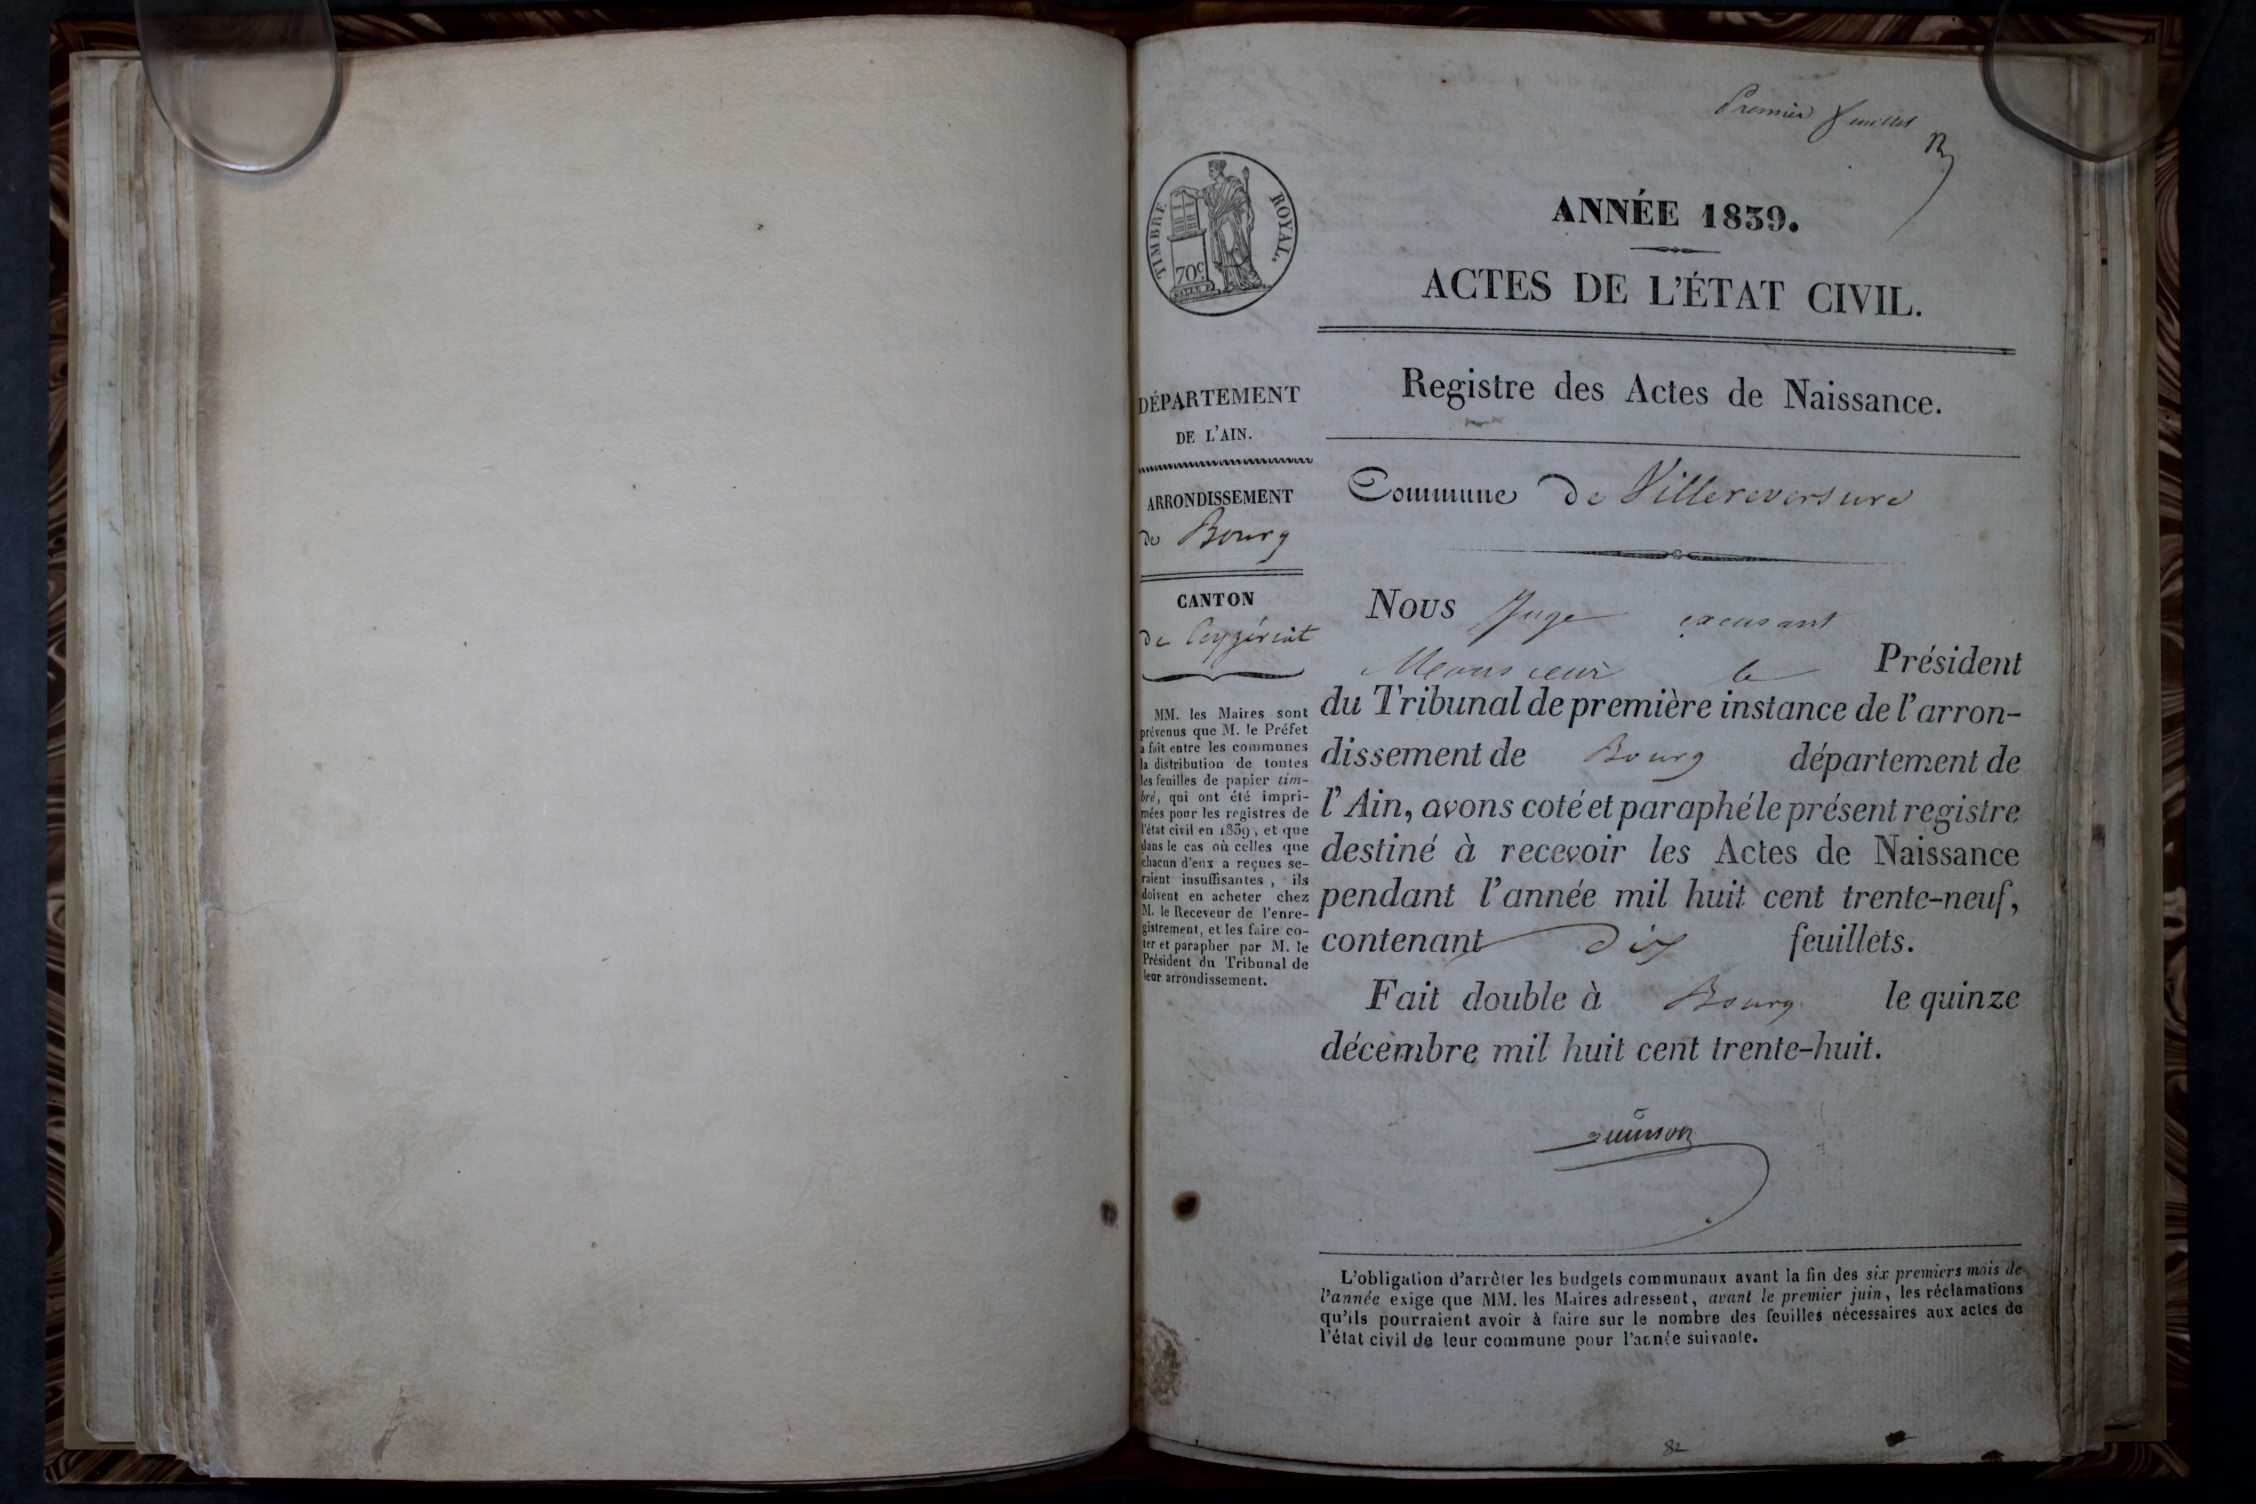 Premier feuillet
TIMBRE ROYAL.
70c
ANNÉE 1839.
ACTES DE L'ÉTAT CIVIL.
DÉPARTEMENT
DE L'AIN.
ARRONDISSEMENT
de Bourg
CANTON
de Ceyzériat
MM. les Maires sont
prévenus que M. le Préfet
a fait entre les communes
la distribution de toutes
les feuilles de papier tim-
bré, qui ont été impri-
mées pour les registres de
l'état civil en 1839, et que
dans le cas où celles que
chacun d'eux a reçues se-
raient insuffisantes, ils
doivent en acheter chez
M. le Receveur de l'enre-
gistrement, et les faire co-
ter et parapher par M. le
Président du Tribunal de
leur arrondissement.
Registre des Actes de Naissance.
Commune de Villereversure
Nous Juge excusant
Monsieur le Président
du Tribunal de première instance de l'arron-
dissement de Bourg département de
l'Ain, avons coté et paraphé le présent registre
destiné à recevoir les Actes de Naissance
pendant l'année mil huit cent trente-neuf,
contenant dix feuillets.
Fait double à Bourg le quinze
décembre mil huit cent trente-huit.
L'obligation d'arrêter les budgets communaux avant la fin des six premiers mois de
l'année exige que MM. les Maires adressent, avant le premier juin, les réclamations
qu'ils pourraient avoir à faire sur le nombre des feuilles nécessaires aux actes de
l'état civil de leur commune pour l'année suivante.
82